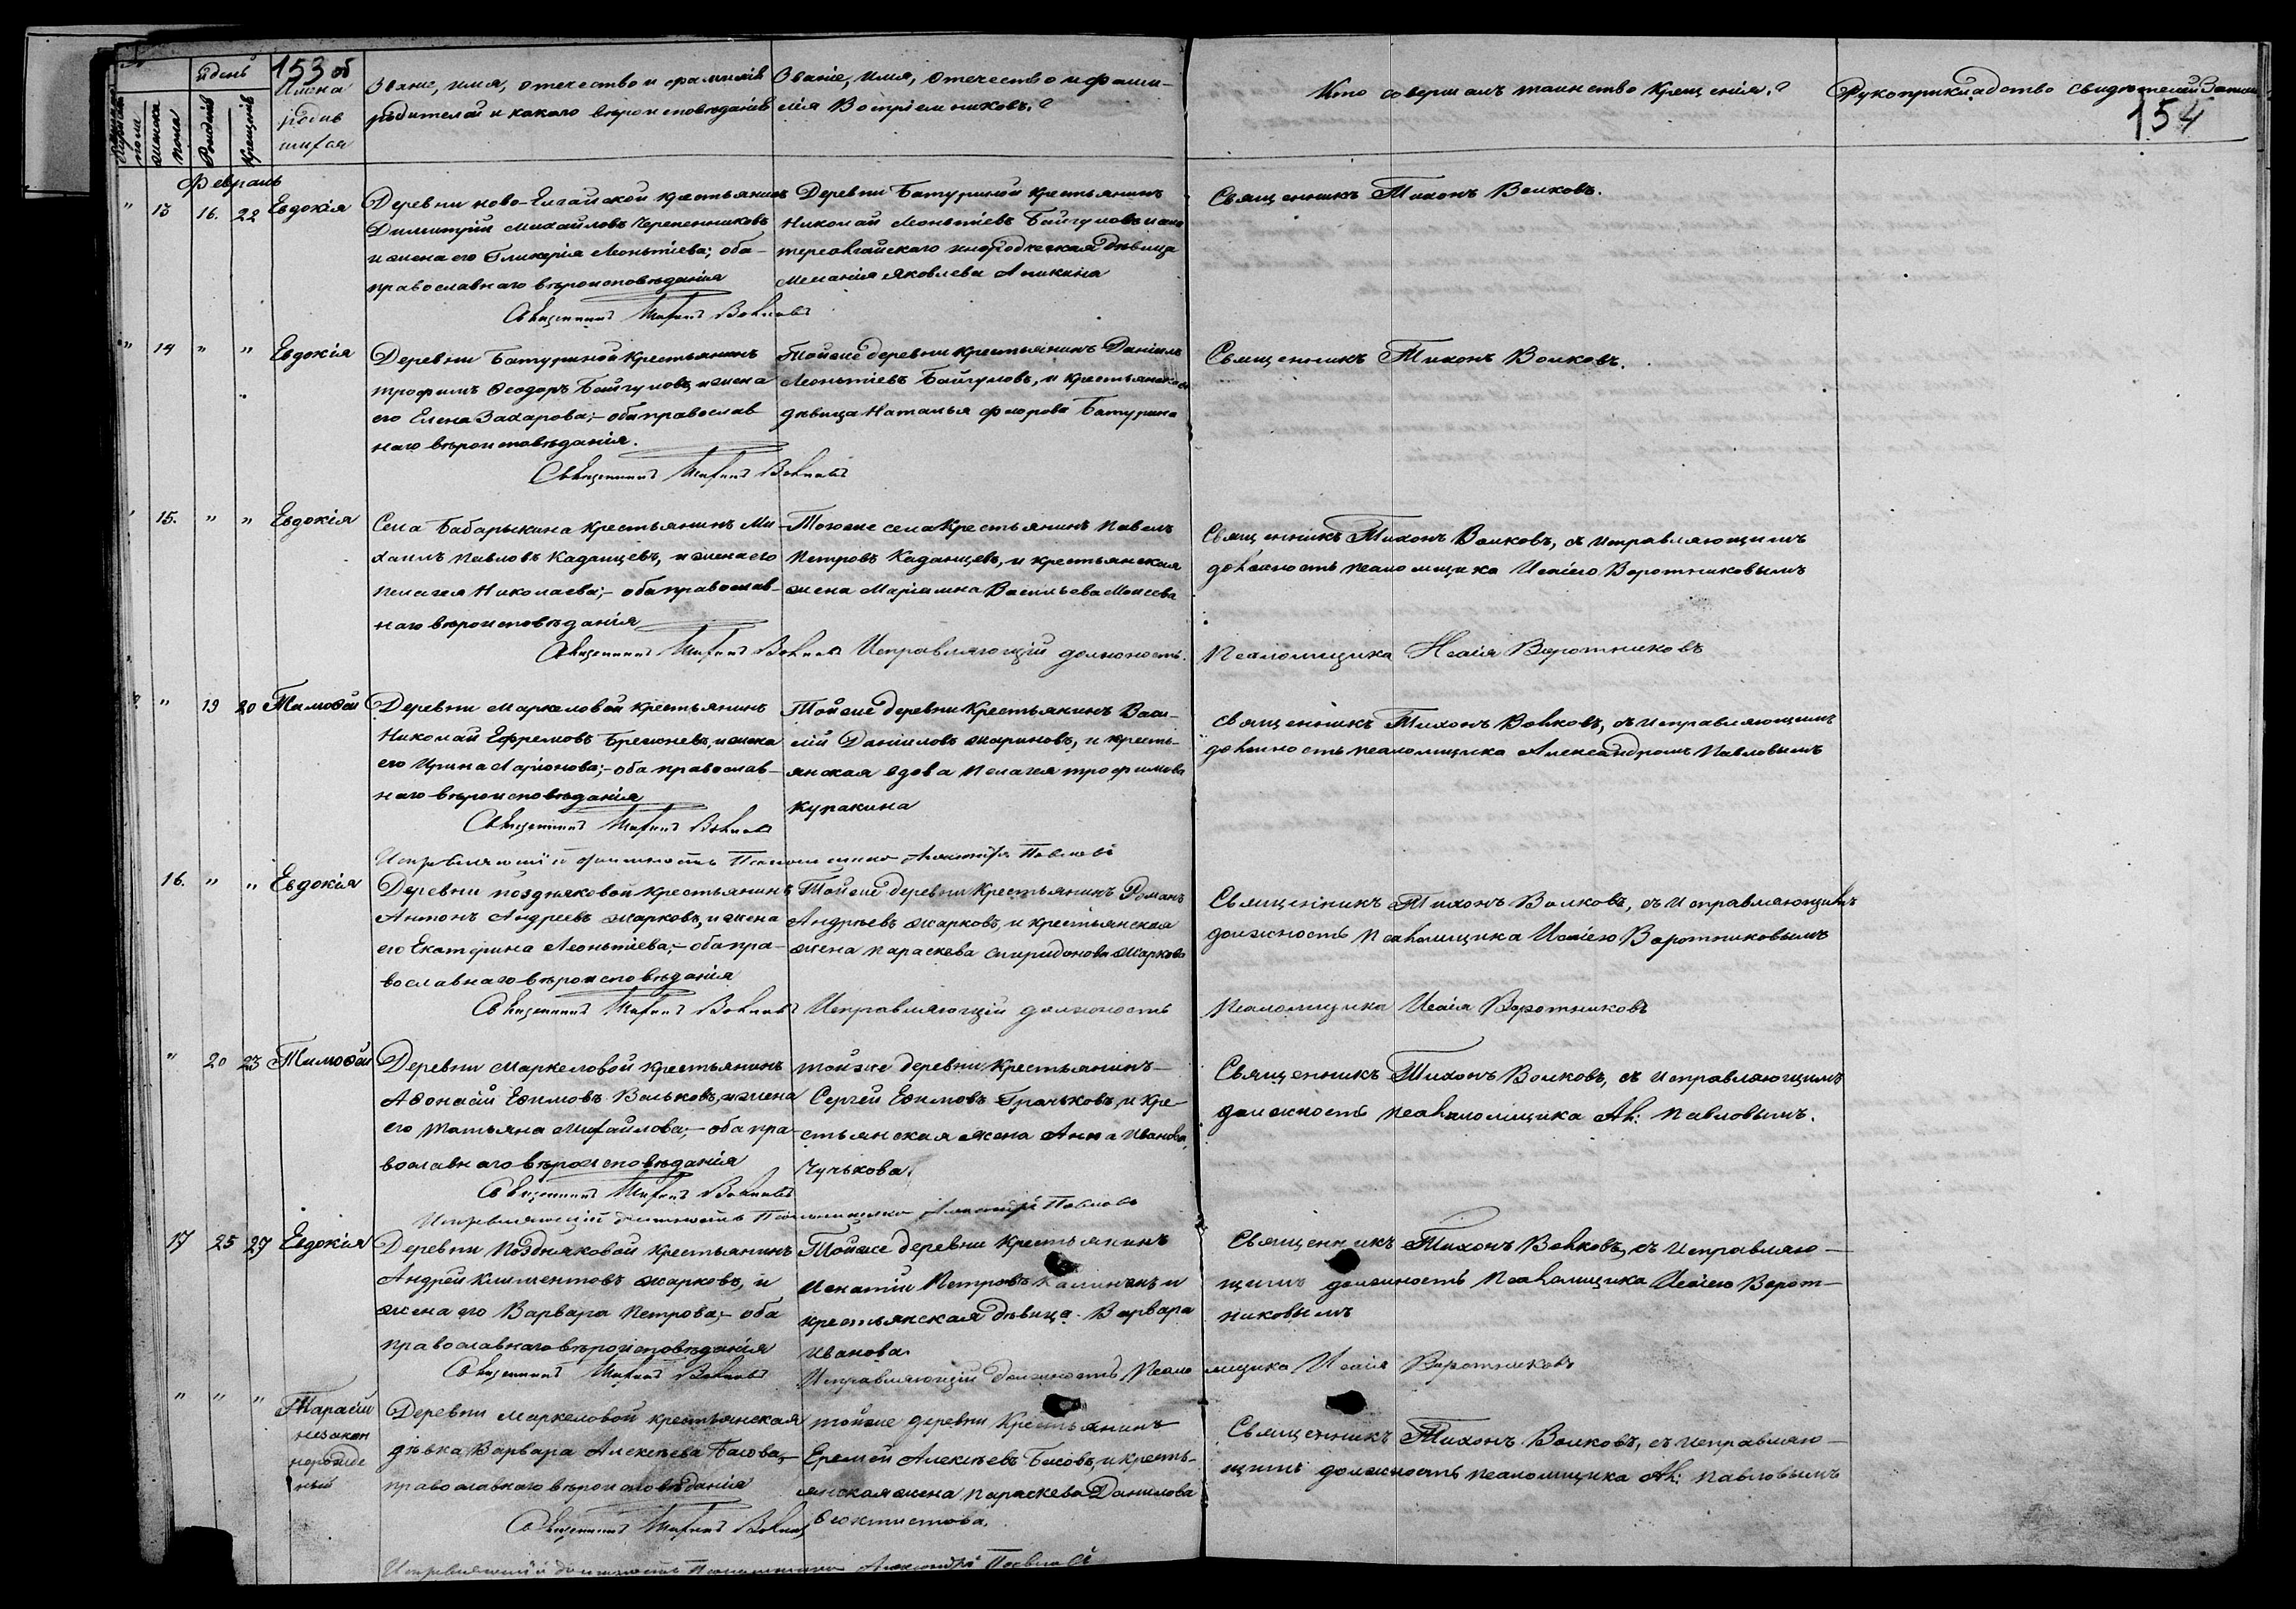 153 об
и день
Имена
родив
шихся
мужеска
пола
женска
пола
Рожденія
Крещенія
Званіе, имя, отечество и фамилія
родителей и какого вѣроисповѣданія
Званіе, имя, отечество и фами-
лія Воспріемниковъ?
Кто совершалъ таинство крещенія?
Рукоприкладство свидѣтелей Записи
154
Февраль
" 13 16. 22 Евдокія
Деревни ново-Елгайской крестьянинъ
Димитрій Михайловъ Черепенниковъ
и жена его Гликерія Леоньтіева; оба
православнаго вѣроисповѣданія
Священникъ Тихонъ Волковъ
Деревни Батуриной крестьянинъ
Николай Леоньтіевъ Байгуловъ и
инородческая дѣвица
Меланія Яковлева Аникина
Священникъ Тихонъ Волковъ.
" 14 " " Евдокія
Деревни Батуриной крестьянинъ
трофимъ Ѳеодоръ Байгуловъ, и жена
его Елена Захарова;- оба православ
наго вѣроисповѣданія.
Священникъ Тихонъ Волковъ
Тойже деревни крестьянинъ Даніилъ
Леоньтіевъ Байгуловъ, и крестьянская
дѣвица Наталья флорова Батурина
Священникъ Тихонъ Волковъ.
" 15. " " Евдокія
Села Бабарыкина крестьянинъ Ми-
хаилъ Павловъ Каданцевъ, и жена его
Пелагея Николаева;- оба православ-
наго вѣроисповѣданія
Священникъ Тихонъ Волковъ
Тогоже села крестьянинъ Павелъ
Петровъ Каданцевъ, и крестьянская
жена Маріамна Васильева Моисеева
Священникъ Тихонъ Волковъ, съ исправляющимъ
должность псаломщика Исаіею Воротниковымъ
Исправляющій должность
Псаломщика Исаія Воротниковъ
" 19 20 Тимоѳей
Деревни Маркеловой крестьянинъ
Николай Ефремовъ Брежневъ, и жена
его Ирина Ларіонова;- оба православ-
наго вѣроисповѣданія
Священникъ Тихонъ Волковъ
Тойже деревни крестьянинъ Васи-
лій Даніиловъ Жариновъ, и кресть-
янская вдова Пелагея трофимова
Куракина
Священникъ Тихонъ Волковъ, съ исправляющимъ
должность псаломщика Александромъ Павловымъ
Исправляющій должность Псаломщика Александръ Павловъ
16. " " Евдокія
Деревни поздняковой крестьянинъ
Антонъ Андреевъ Жарковъ, и жена
его Екатерина Леоньтіева;- оба пра-
вославнаго вѣроисповѣданія
Священникъ Тихонъ Волковъ
Тойже деревни крестьянинъ Романъ
Андрѣевъ Жарковъ, и крестьянская
жена Параскева Спиридонова Жаркова
Священникъ Тихонъ Волковъ, съ исправляющимъ
должность Псаломщика Исаіею Воротниковымъ
Исправляющій должность
Псаломщика Исаія Воротниковъ
" 20 23 Тимоѳей
Деревни Маркеловой крестьянинъ
Аѳонасій Ефимовъ Вальковъ, и жена
его Татьяна Михайлова;- оба пра-
вославнаго вѣроисповѣданія
Священникъ Тихонъ Волковъ
тойже деревни крестьянинъ
Сергѣй Ефимовъ Грачьковъ, и кре-
стьянская жена Анна Иванова
Чучькова.
Священникъ Тихонъ Волковъ, съ исправляющимъ
должность псаломщика Ал: Павловымъ.
Исправляющій должность Псаломщика Александръ Павловъ
17 25 27 Евдокія
Деревни Поздняковой крестьянинъ
Андрей Климентовъ Жарковъ, и
жена его Варвара Петрова;- оба
православнаго вѣроисповѣданія
Священникъ Тихонъ Волковъ
Тойже деревни крестьянинъ
Игнатій Петровъ Калининъ и
крестьянская дѣвица Варвара
Иванова
Священникъ Тихонъ Волковъ, съ исправляю-
щимъ должность Псаломщика Исаіею Ворот-
никовымъ
Исправляющій должность Псало
мщика Исаія Воротниковъ
" " " Тарасій
незакон
норожде
ный
Деревни Маркеловой крестьянская
дѣвка Варвара Алексѣева Басова,-
православнаго вѣроисповѣданія
Священникъ Тихонъ Волковъ
тойже деревни крестьянинъ
Еремѣй Алексѣевъ Басовъ, и кресть-
янская жена Параскева Данилова
Ѳеоктистова.
Священникъ Тихонъ Волковъ, съ исправляю-
щимъ должность псаломщика Ал: Павловымъ
Исправляющій должность Псаломщика Александръ Павловъ